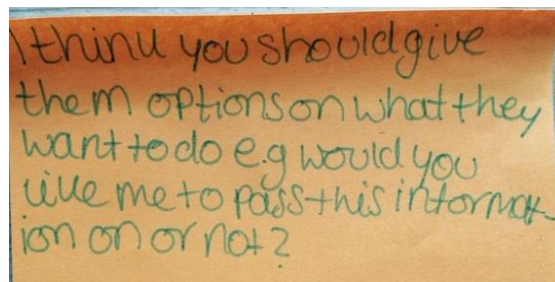 I think you should give
them options on what they
want to do e.g would you
like me to pass this informat-
ion on or not?